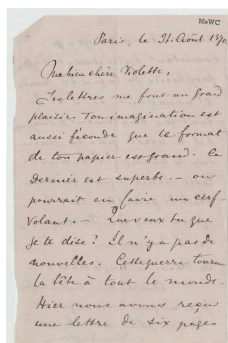 MeWC
Paris, le 31. Août 1870
Ma bien chère Violette,
Tes lettres me font un grand
plaisir. Ton imagination est
aussi féconde que le format
de ton papier est grand. Ce
dernier est superbe. – on
pourrait en faire un cerf-
volant. – Que veux tu que
je te dise? Il n'y a pas de
nouvelles. Cette guerre tourne
la tête à tout le monde.
Hier nous avons reçu
une lettre de six pages